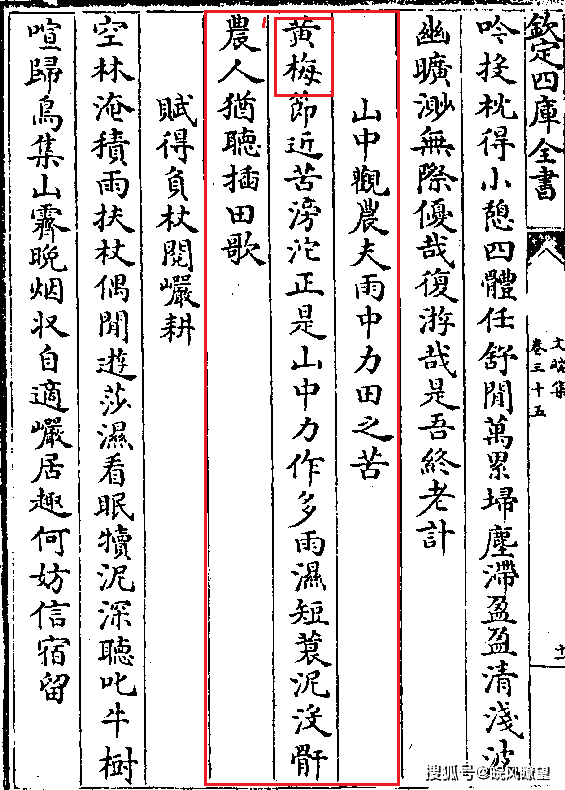 欽定四庫全書
文端集
卷三十五
十一
吟投枕得小憩四體任舒閒萬累埽塵滯盈盈清淺波
幽曠渺無際優哉復游哉是吾終老計
山中觀農夫雨中力田之苦
黃梅節近苦滂沱正是山中力作多雨濕短蓑泥没骭
農人猶聽插田歌
賦得負杖閱巖耕
空林淹積雨扶杖偶閒遊莎濕看眠犢泥深聽叱牛樹
喧歸鳥集山霽晚烟収自適巖居趣何妨信宿留
搜狐号@皖风瞭望